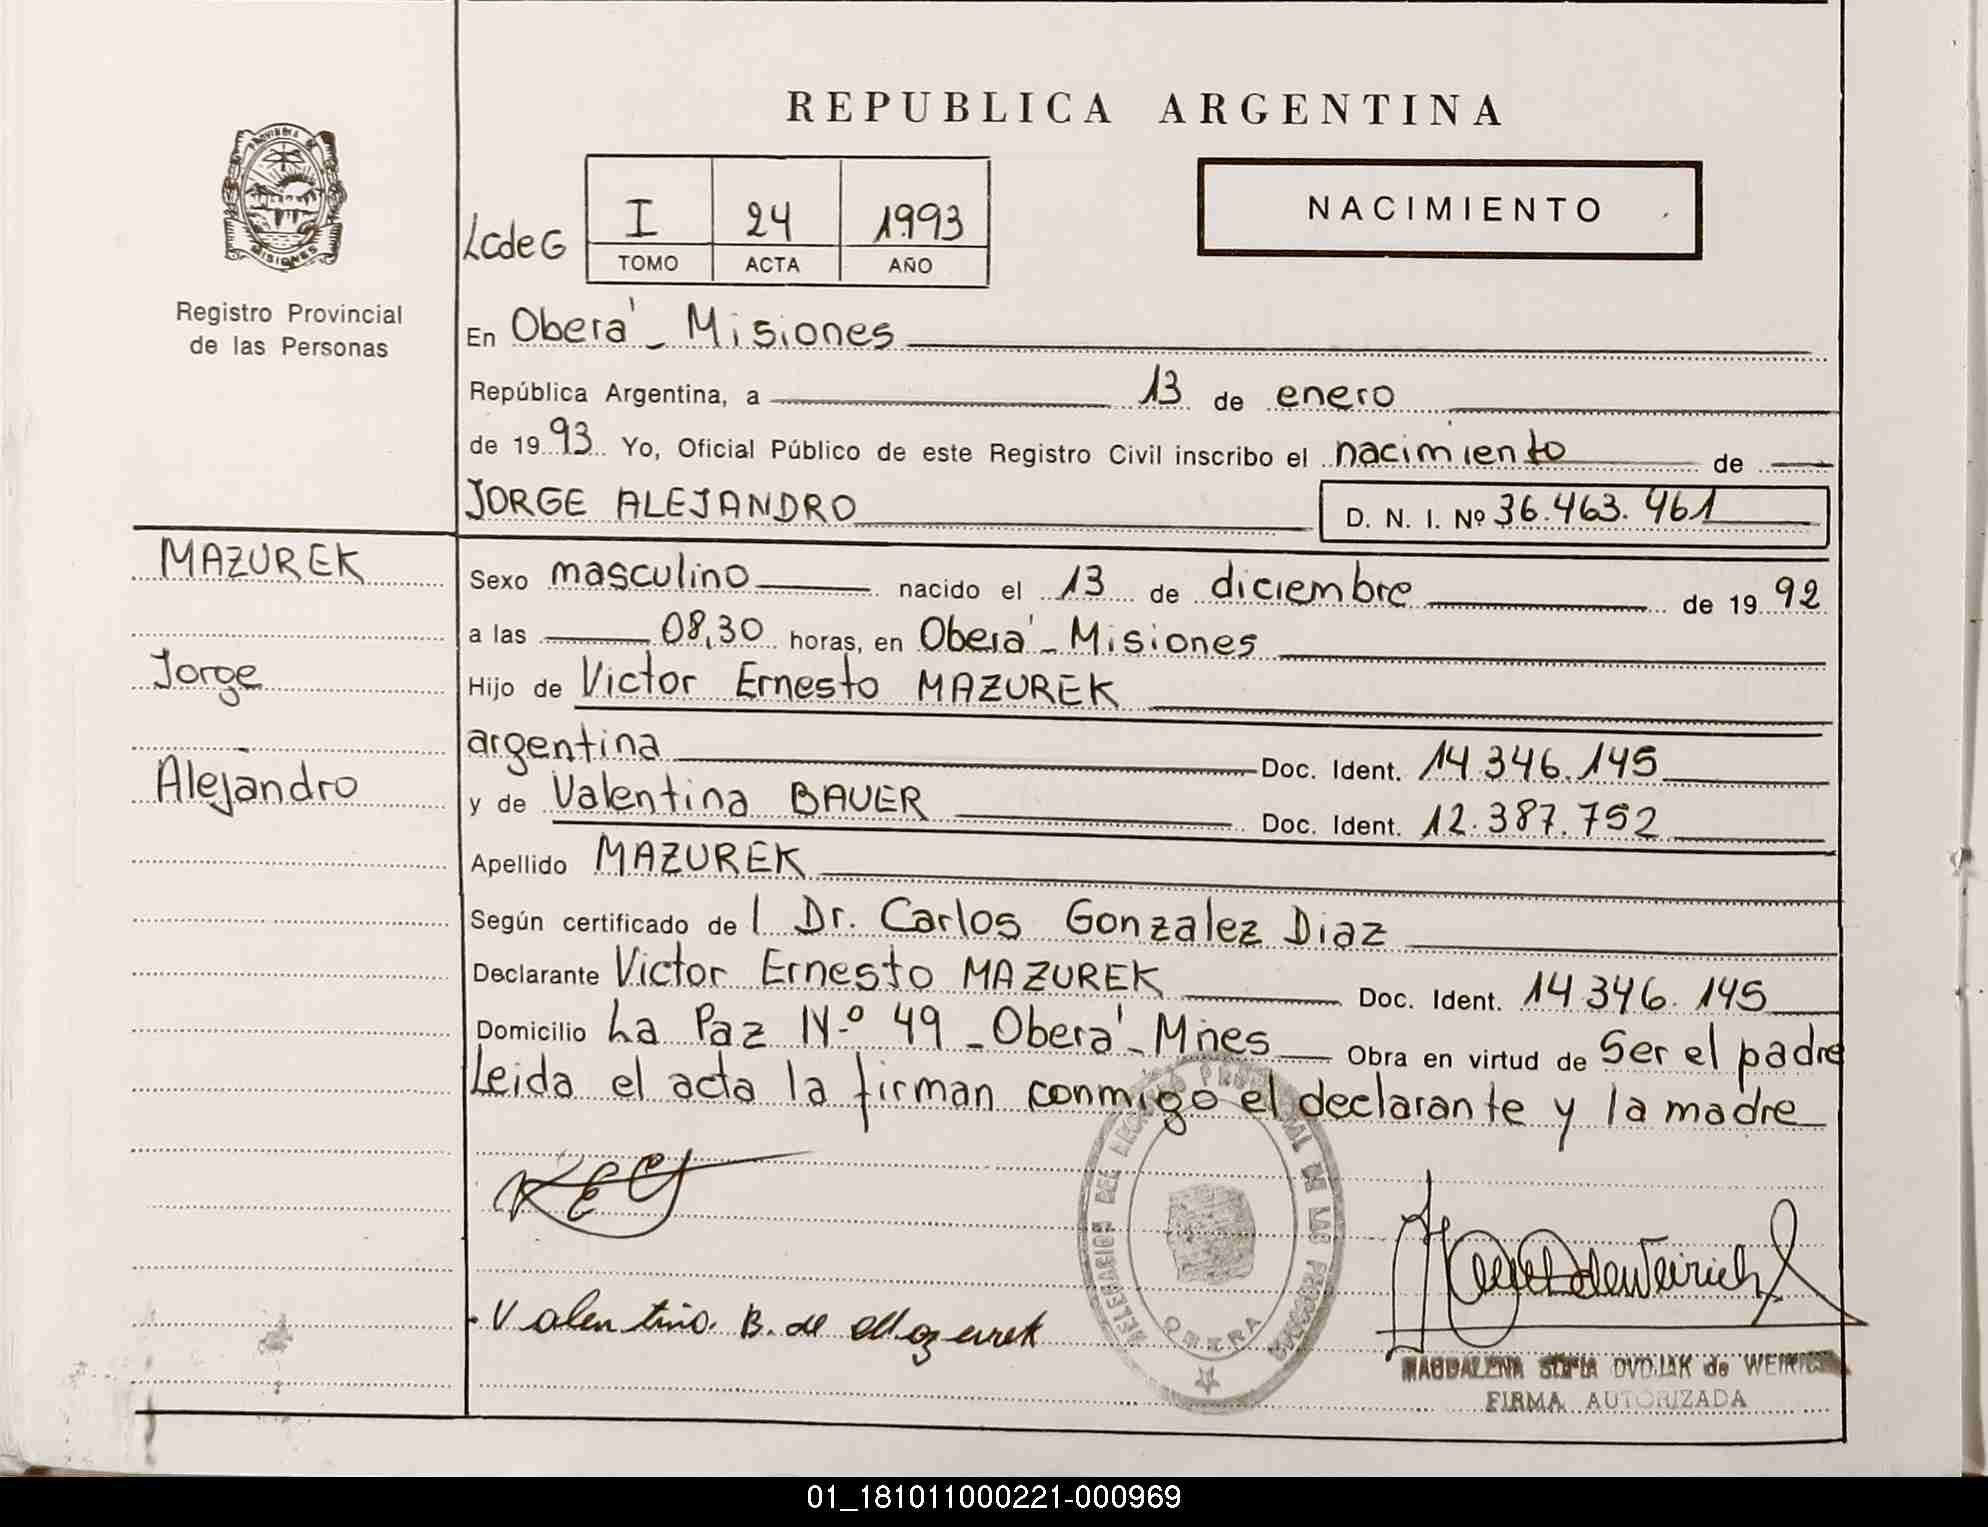 REPUBLICA ARGENTINA
PROVINCIA DE
MISIONES
Registro Provincial
de las Personas
LcdeG
I 24 1993
TOMO ACTA AÑO
NACIMIENTO
En Oberá - Misiones
República Argentina, a 13 de enero
de 1993. Yo, Oficial Público de este Registro Civil inscribo el nacimiento de
JORGE ALEJANDRO D. N. I. Nº 36.463.461
MAZUREK
Jorge
Alejandro
Sexo masculino nacido el 13 de diciembre de 1992
a las 08,30 horas, en Oberá - Misiones
Hijo de Victor Ernesto MAZUREK
argentina Doc. Ident. 14.346.145
y de Valentina BAUER Doc. Ident. 12.387.752
Apellido MAZUREK
Según certificado de l Dr. Carlos Gonzalez Diaz
Declarante Victor Ernesto MAZUREK Doc. Ident. 14.346.145
Domicilio La Paz N.º 49 - Oberá - Mnes Obra en virtud de Ser el padre
Leida el acta la firman conmigo el declarante y la madre
DELEGACION DEL REGISTRO PROVINCIAL DE LAS PERSONAS
OBERA
Valentina B. de Mazurek
MAGDALENA SOFIA DVOJAK de WEIRICH
FIRMA AUTORIZADA
01_181011000221-000969